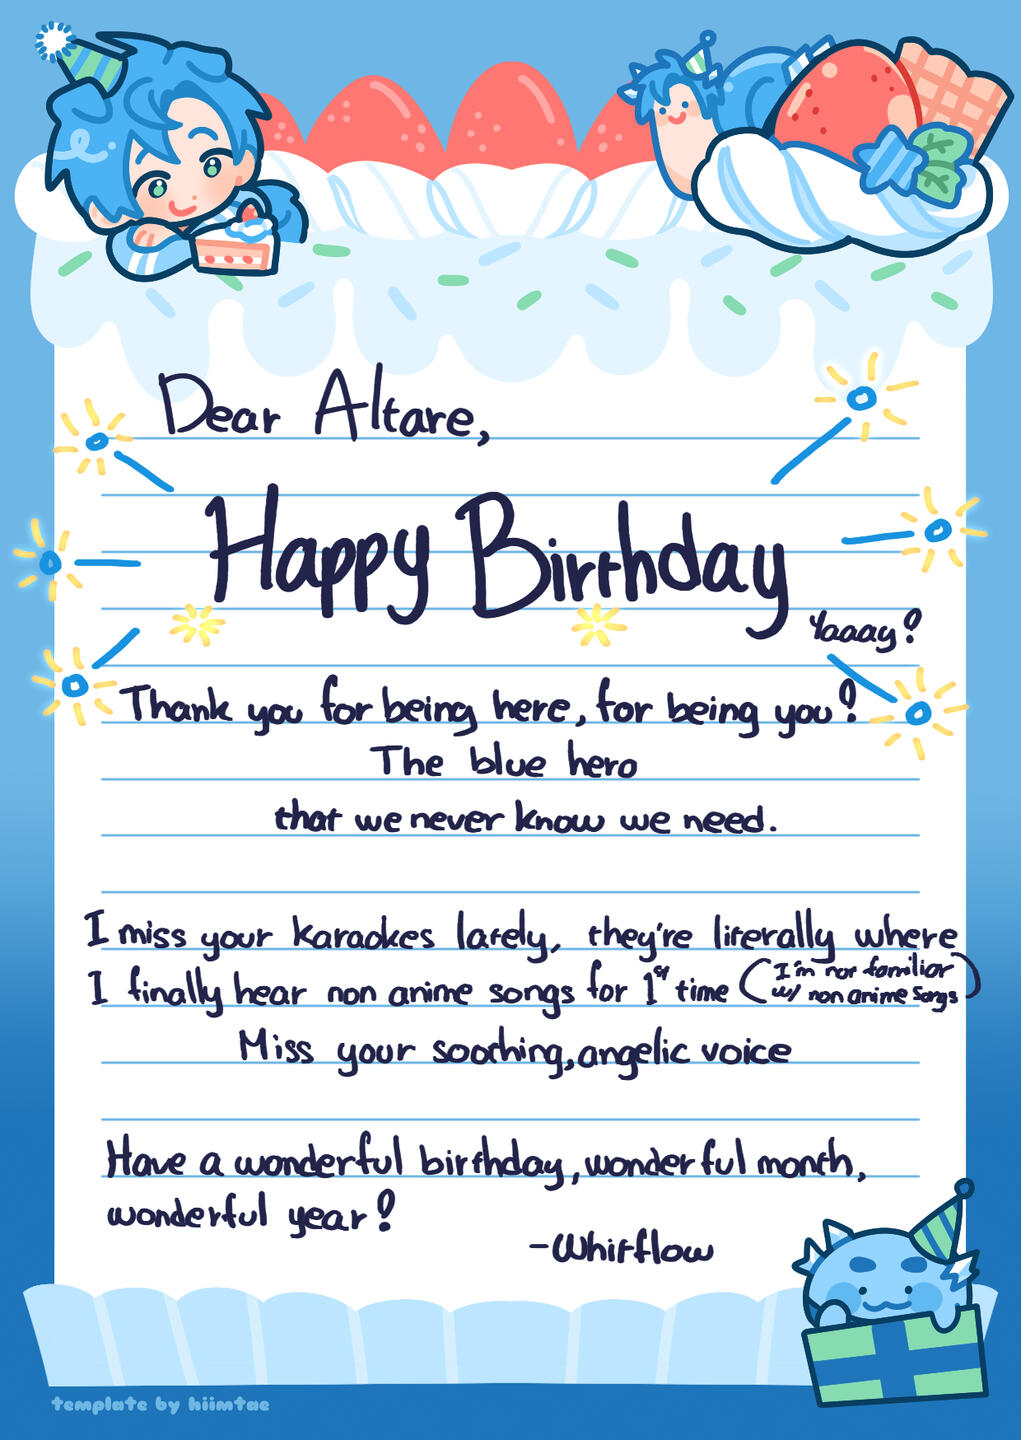 Dear Altare,
Happy Birthday
Yaaay!
Thank you for being here, for being you!
The blue hero
that we never know we need.
I miss your karaokes lately, they're literally where
I finally hear non anime songs for 1st time (I'm not familiar
w/ non anime songs)
Miss your soothing, angelic voice
Have a wonderful birthday, wonderful month,
wonderful year!
-Whitflow
template by hiimtae